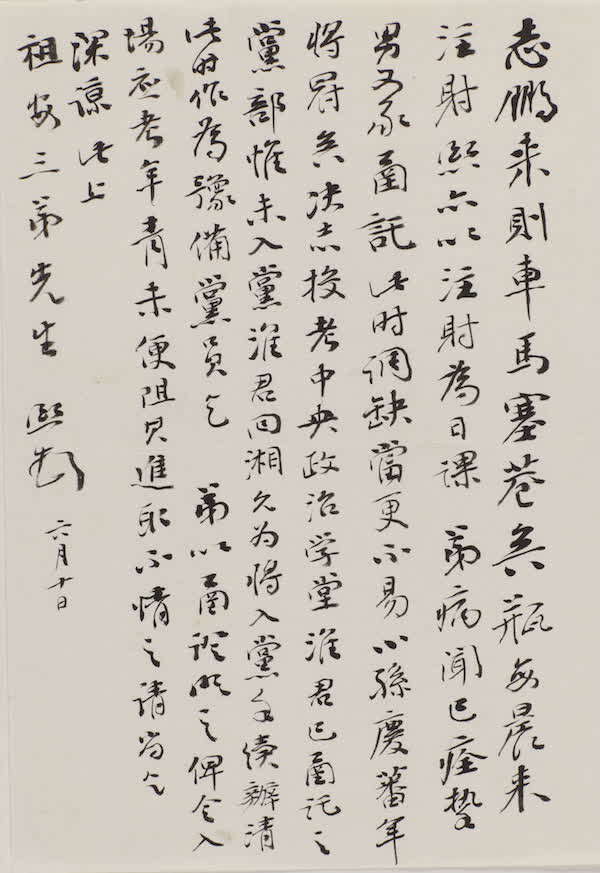 志鵬來則車馬塞巷矣瓶每晨來
注射熙亦以注射為日課 弟病聞已痊摯
男又承函託此时調缺當更不易小孫慶蕃年
將冠矣決志投考中央政治学堂淮君已函託之
黨部惟未入黨淮君回湘允为將入黨手續辦清
此时作為豫備黨員乞 弟以函證明之俾令入
場應考年青未便阻其進取不情之請尚乞
深諒此上
祖安三弟先生 熙 六月十日